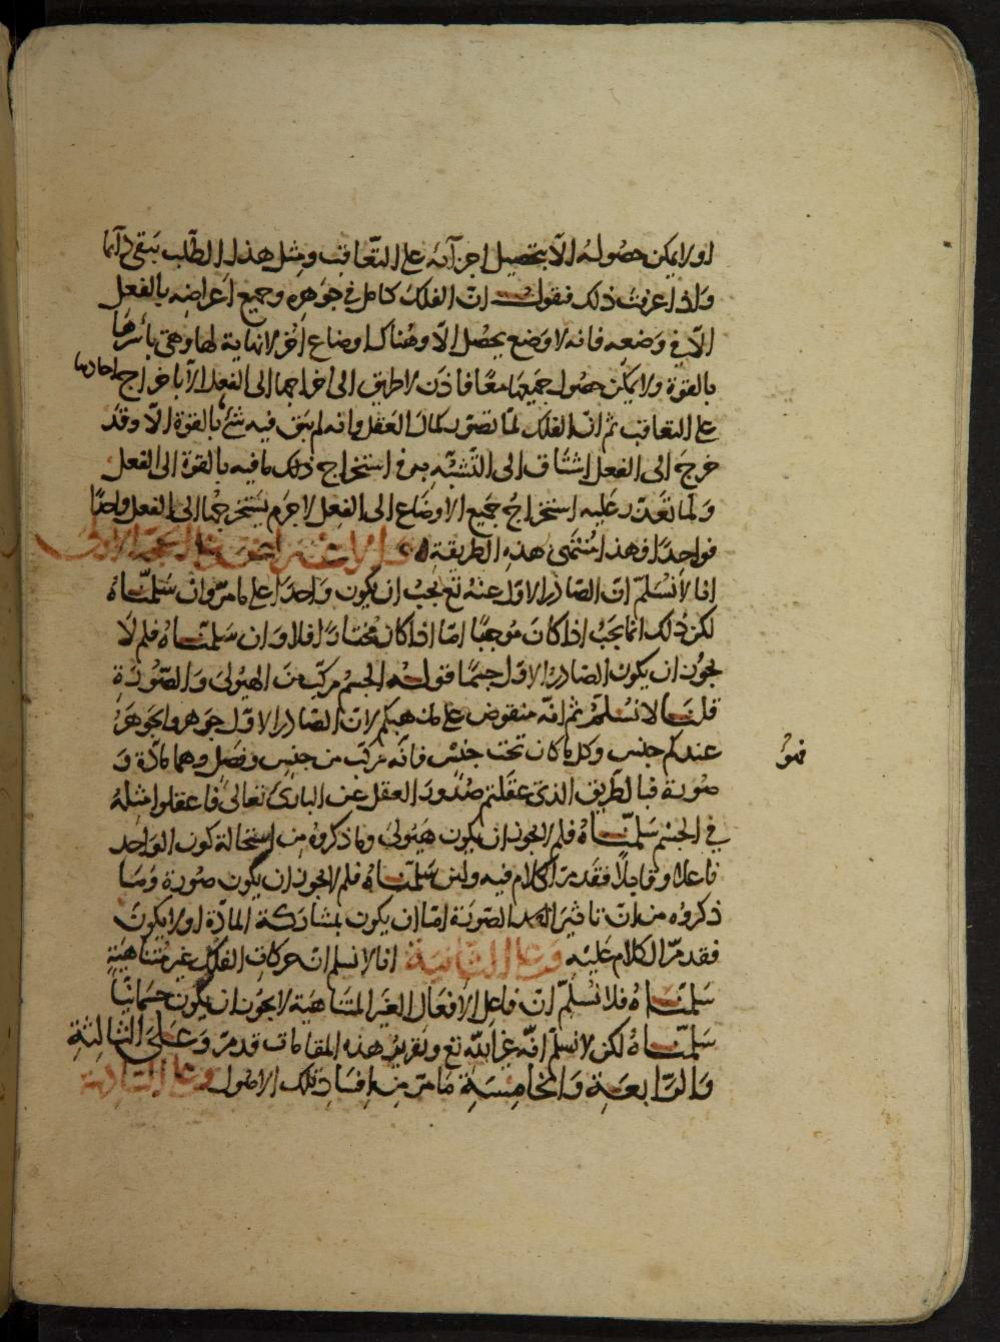 او لا يمكن حصوله الا بتحصيل اجزآئه على التّعاقب ومثل هذا الطّلب يبقى دآئما
واذا عرفت ذلك فنقول انّ الفلك كامل في جوهره وجميع اعراضه بالفعل
الّا في وضعه فانه لا وضع يحصل الّا وهناك اوضاع اخر لا نهاية لها وهي باسرها
بالقوة ولا يمكن حصول جميعها معًا فاذن لا طريق الى اخراجها الى الفعل الّا باخراج احادها
على التعاقب ثم انّ الفلك لمّا تصوّر كمال العقل وانه لم يبق فيه شئ بالقوة الّا وقد
خرج الى الفعل اشتاق الى التّشبّه به في استخراج ذلك ما فيه بالقوة الى الفعل
ولما تعذّر عليه استخراج جميع الاوضاع الى الفعل لا جرم يستخرجها الى الفعل واحدًا
فواحدًا فهذا منتهى هذه الطريقة الحجّة الاولى
انا لا نسلّم انّ الصّادر الاوّل عنه تع يجب ان يكون واحدًا على ما مرّ وان سلّمناه
لكن ذلك انما يجب اذا كان موجبًا امّا اذا كان مختارًا فلا وان سلّمناه فلم لا
يجوز ان يكون الصادر الاوّل جسمًا قوله الجسم مركّب من الهيولى والصّورة
قلنا لا نسلّم ثم انّه منقوض على مذهبكم لانّ الصّادر الاوّل جوهر والجوهر
عندكم جنس وكل ما كان تحت جنس فانّه مركّب من جنس وفصل وهما مادّة و
صورة فبالطريق الذي عقلتم صدور العقل عن البارئ تعالى فاعقلوا مثله
في الجسم سلّمناه فلم لا يجوز ان يكون هيولى وما ذكروه من استحالة كون الواحد
فاعلا وقابلًا فقد مرّ الكلام فيه ولئن سلّمناه فلم لا يجوز ان يكون صورة وما
ذكروه من انّ تاثير الصّورة امّا ان يكون بمشاركة المادّة او لا يكون
فقد مرّ الكلام عليه وعلى الثانية انا لا نسلم انّ حركات الفلك غير متناهية
سلّمناه فلا نسلّم انّ فاعل الافعال الغير المتناهية لا يجوز ان يكون جسمانيّا
سلّمناه لكن لا نسلّم انّه غير الله تع وتقرير هذه المقامات قد مرّ وعلى الثالثة
والرّابعة والخامسة ما مرّ من افساد تلك الاصول وعلى السّادسة